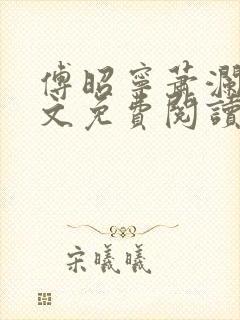 傅昭寧蕭瀾
文免費閱讀
宋曦曦